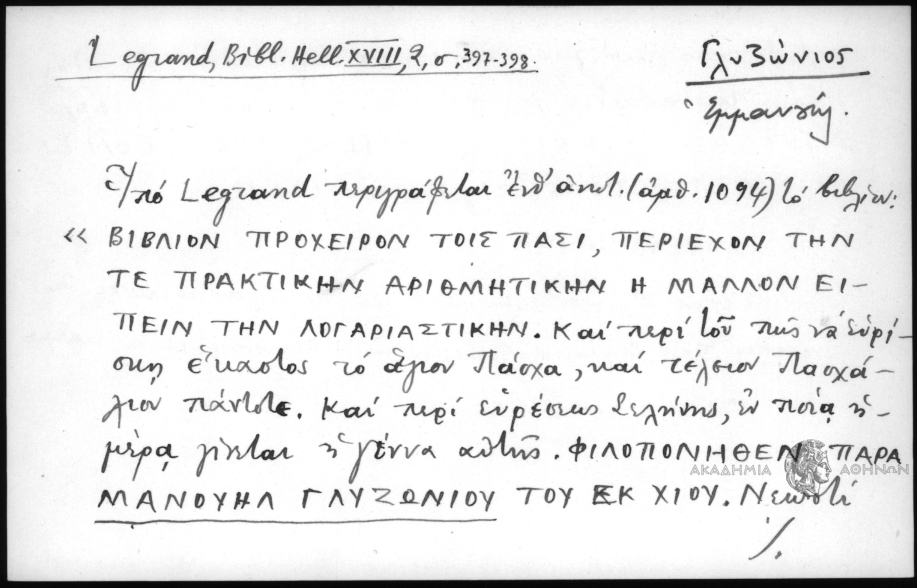 Legrand, Bibl. Hell. XVIII, 2, σ, 397-398.
Γλυζώνιος
Ἐμμανουήλ.
Ὑπό Legrand περιγράφεται ὑπ' ἀριθ. (ἀριθ. 1094) τό βιβλίον:
« ΒΙΒΛΙΟΝ ΠΡΟΧΕΙΡΟΝ ΤΟΙΣ ΠΑΣΙ, ΠΕΡΙΕΧΟΝ ΤΗΝ
ΤΕ ΠΡΑΚΤΙΚΗΝ ΑΡΙΘΜΗΤΙΚΗΝ Η ΜΑΛΛΟΝ ΕΙ-
ΠΕΙΝ ΤΗΝ ΛΟΓΑΡΙΑΣΤΙΚΗΝ. Καί περί τοῦ πῶς νά εὑρί-
σκῃ ἕκαστος τό ἅγιον Πάσχα, καί τέλειον Πασχά-
λιον πάντοτε. Καί περί εὑρέσεως Σελήνης, ἐν ποίᾳ ἡ-
μέρᾳ γίνεται ἡ γέννα αὐτῆς. ΦΙΛΟΠΟΝΗΘΕΝ ΠΑΡΑ
ΑΚΑΔΗΜΙΑ ΑΘΗΝΩΝ
ΜΑΝΟΥΗΛ ΓΛΥΖΩΝΙΟΥ ΤΟΥ ΕΚ ΧΙΟΥ. Νεωστί
/.